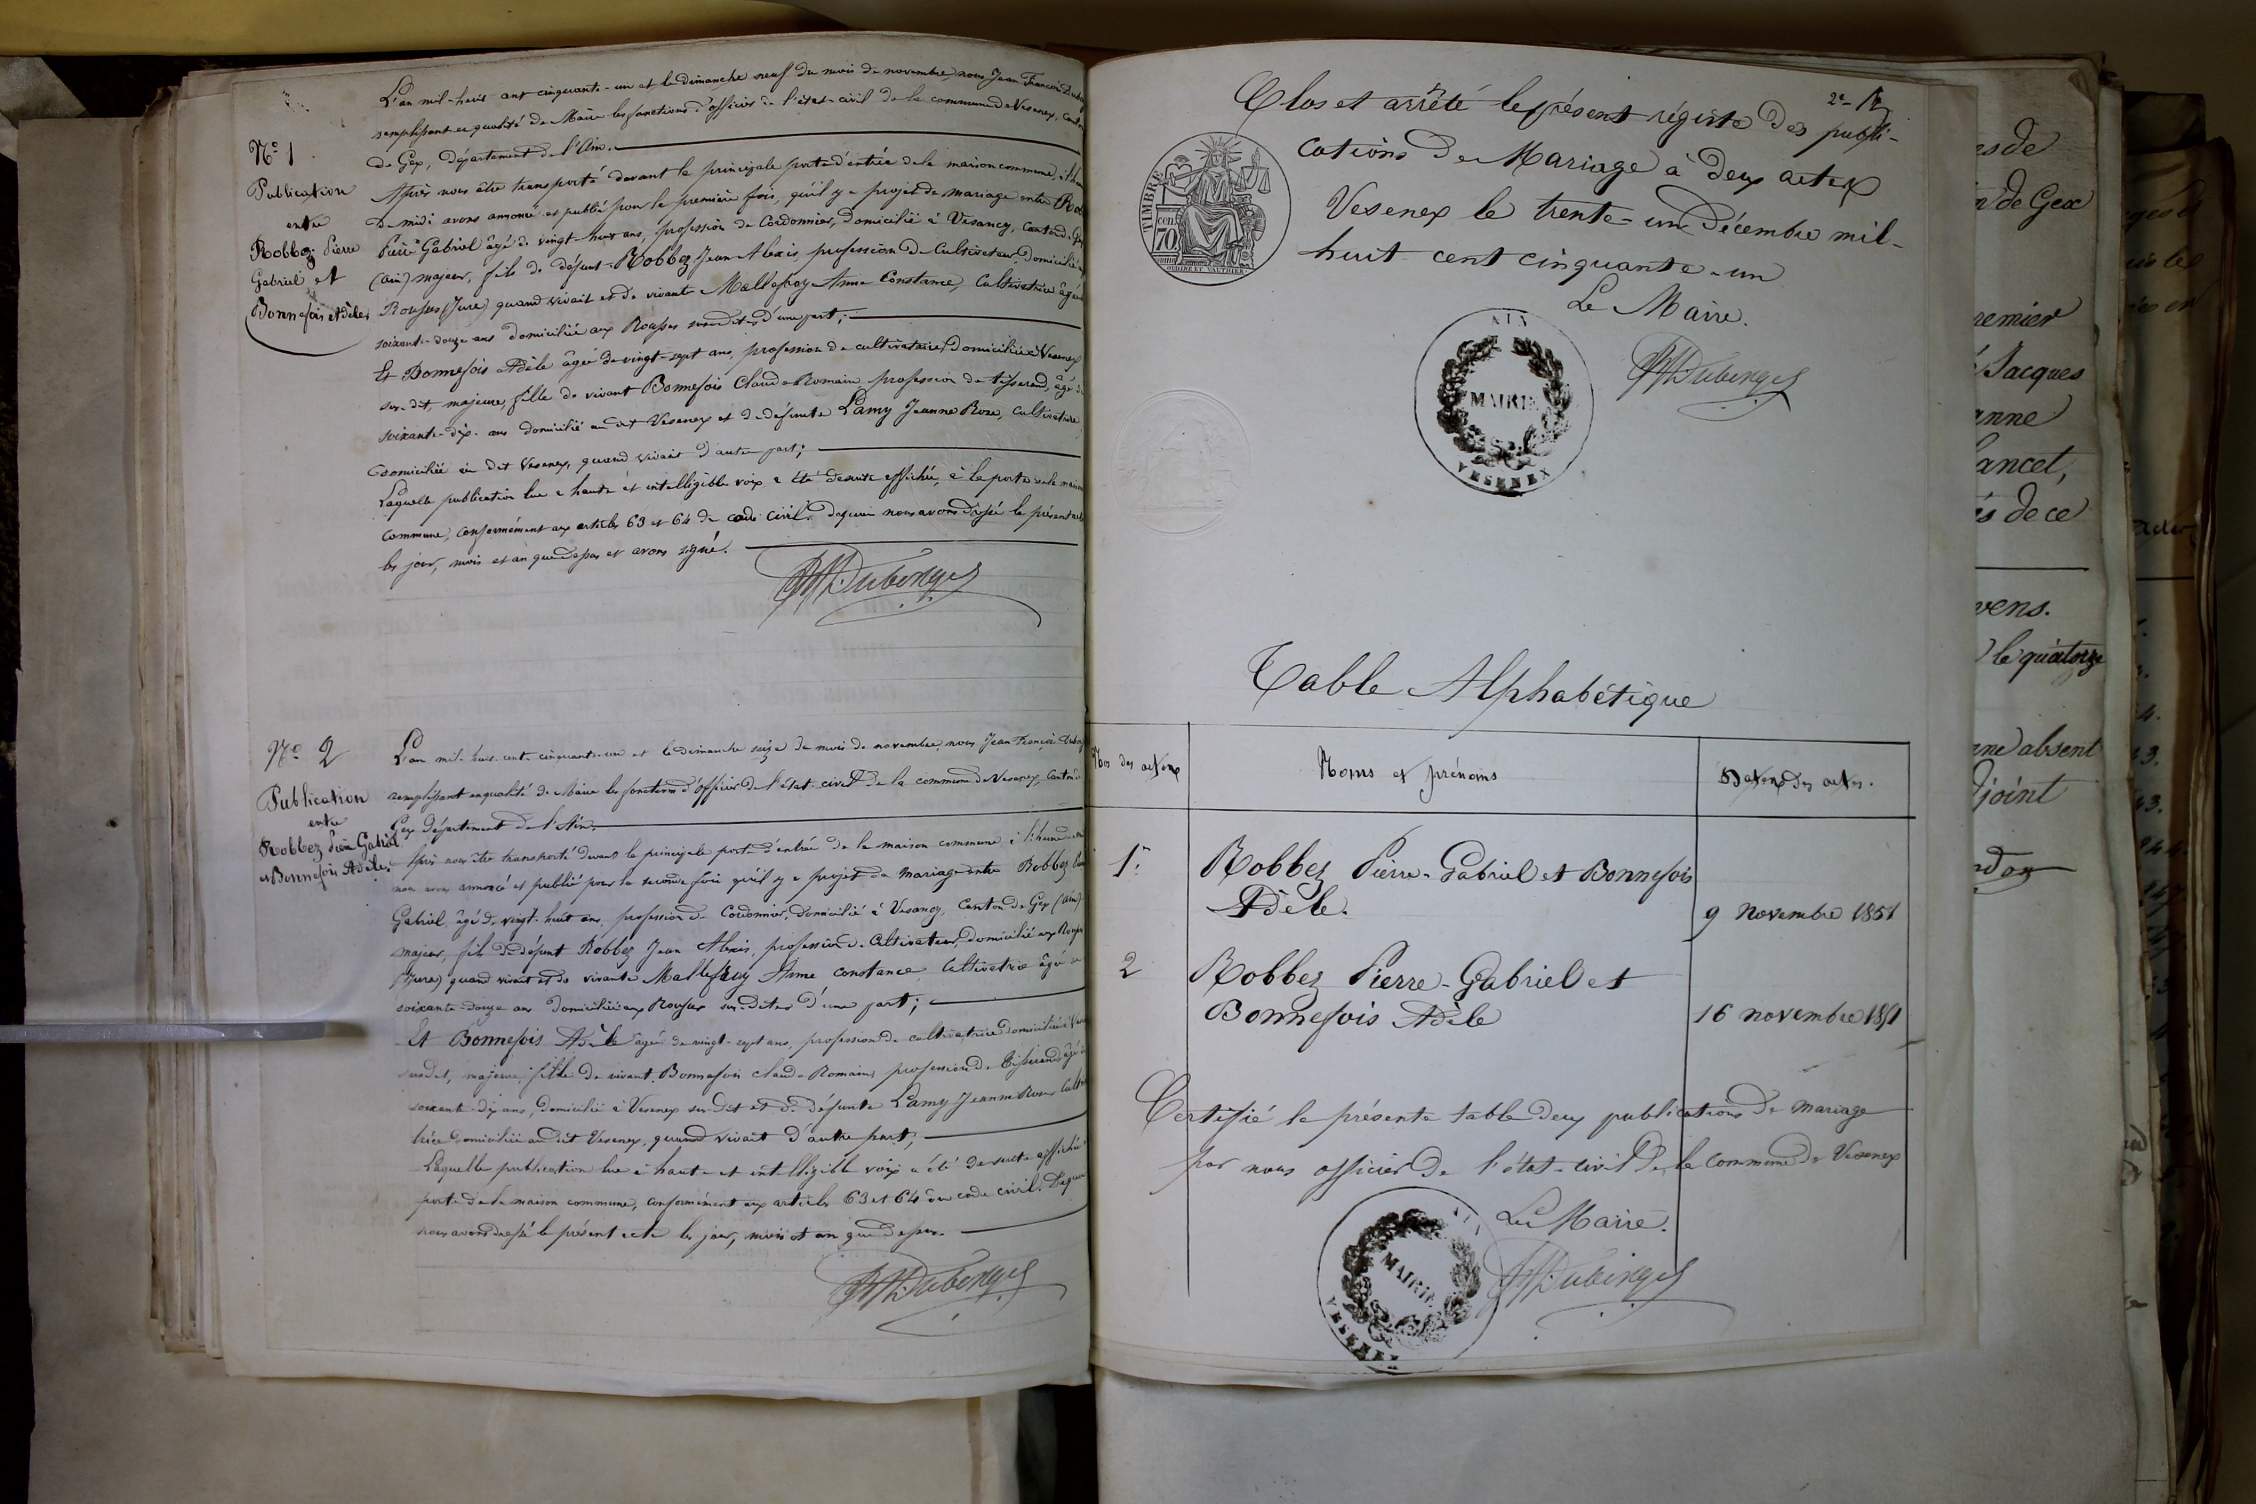 L'an mil-huit cent cinquante-un et le dimanche neuf du mois de novembre, nous Jean François
remplissant en qualité de Maire les fonctions d'officier de l'état-civil de la commune de Vesenex, canton
de Gex, département de l'Ain.
N° 1
Publication
entre
Robbez Pierre
Gabriel et
Bonnefois Adèle
Après nous être transporté devant la principale porte d'entrée de la maison commune, à
de midi avons annoncé et publié pour la première fois, qu'il y a projet de mariage entre
Pierre Gabriel âgé de vingt-huit ans, profession de Cordonnier, domicilié à Vesancy, canton de Gex
(Ain) majeur, fils de défunt Robbez Jean Alexis, profession de Cultivateur, domicilié
Rousses (Jura) quand vivait et de vivante Anne Constance, Cultivatrice âgée
soixante-douze ans domiciliée aux Rousses susdites d'une part;
Et Bonnefois Adèle âgée de vingt-sept ans, profession de cultivatrice, domiciliée à Vesenex
sus-dit, majeure, fille de vivant Bonnefois Claude Romain profession de tisserand, âgé de
soixante-dix ans domicilié au dit Vesenex et de défunte Lamy Jeanne Rose, cultivatrice,
domiciliée au dit Vesenex, quand vivait d'autre part;
Laquelle publication lue à haute et intelligible voix a été de suite affichée, à la porte de la maison
commune, conformément aux articles 63 et 64 du code civil. Dequoi nous avons dressé le présent acte
les jour, mois et an que dessus et avons signé.
N° 2
Publication
entre
Robbez Pierre Gabriel
et Bonnefois Adèle.
L'an mil-huit-cent-cinquante-un et le dimanche seize du mois de novembre, nous Jean François
remplissant en qualité de Maire les fonctions d'officier de l'état-civil de la commune de Vesenex, canton de
Gex département de l'Ain.
Après nous être transporté devant la principale porte d'entrée de la maison commune à
nous avons annoncé et publié pour la seconde fois qu'il y a projet de mariage entre Robbez
Gabriel âgé de vingt-huit ans, profession de Cordonnier, domicilié à Vesancy, Canton de Gex (Ain)
majeur, fils de défunt Robbez Jean Alexis, profession de Cultivateur, domicilié aux
(Jura) quand vivait et de vivante Anne Constance Cultivatrice âgée de
soixante-douze ans domiciliée aux Rousses sus-dites d'une part;
Et Bonnefois Adèle âgée de vingt-sept ans, profession de cultivatrice domiciliée à
susdit, majeure fille de vivant Bonnefois Claude Romain, profession de Tisserand âgé de
soixante-dix ans, domicilié à Vesenex sus-dit et de défunte Lamy Jeanne Rose
trice domiciliée au dit Vesenex, quand vivait d'autre part;
Laquelle publication lue à haute et intelligible voix a été de suite affichée
porte de la maison commune, conformément aux articles 63 et 64 du code civil. Dequoi
nous avons dressé le présent acte les jour, mois et an que dessus.
2e
Clos et arrêté le présent régistre des publi-
cations de Mariage à deux actes
Vesenex le trente-un Décembre mil-
huit cent cinquante-un
Le Maire.
TIMBRE
70
AIN
MAIRIE
VESENEX
Table Alphabétique
Nos des actes
Noms et prénoms
Dates des actes.
1. Robbez Pierre-Gabriel et Bonnefois
Adèle.
9 Novembre 1851
2 Robbez Pierre-Gabriel et
Bonnefois Adèle
16 novembre 1851
Certifié la présente table deux publications de mariage
par nous officier de l'état-civil de la commune de Vesenex
Le Maire.
AIN
MAIRIE
VESENEX
de Gex
Jacques
de ce
le quatorze
absent